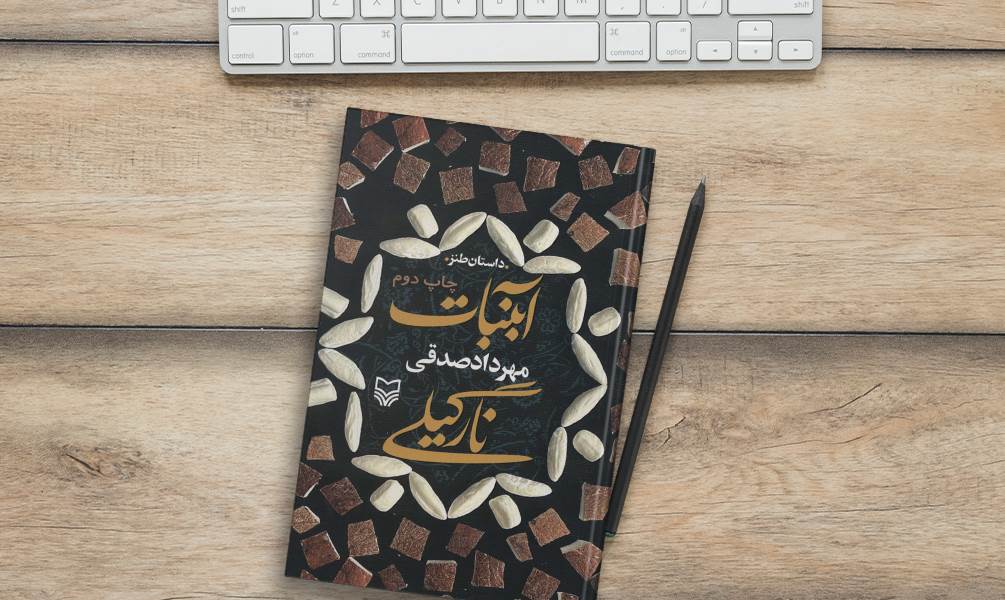 shift
Z X C V B N M , . /
shift
control
alt
option
⌘
command
⌘
command
alt
option
•داستان طنز•
چاپ دوم
آبنبات
مهرداد صدقی
نارگیلی